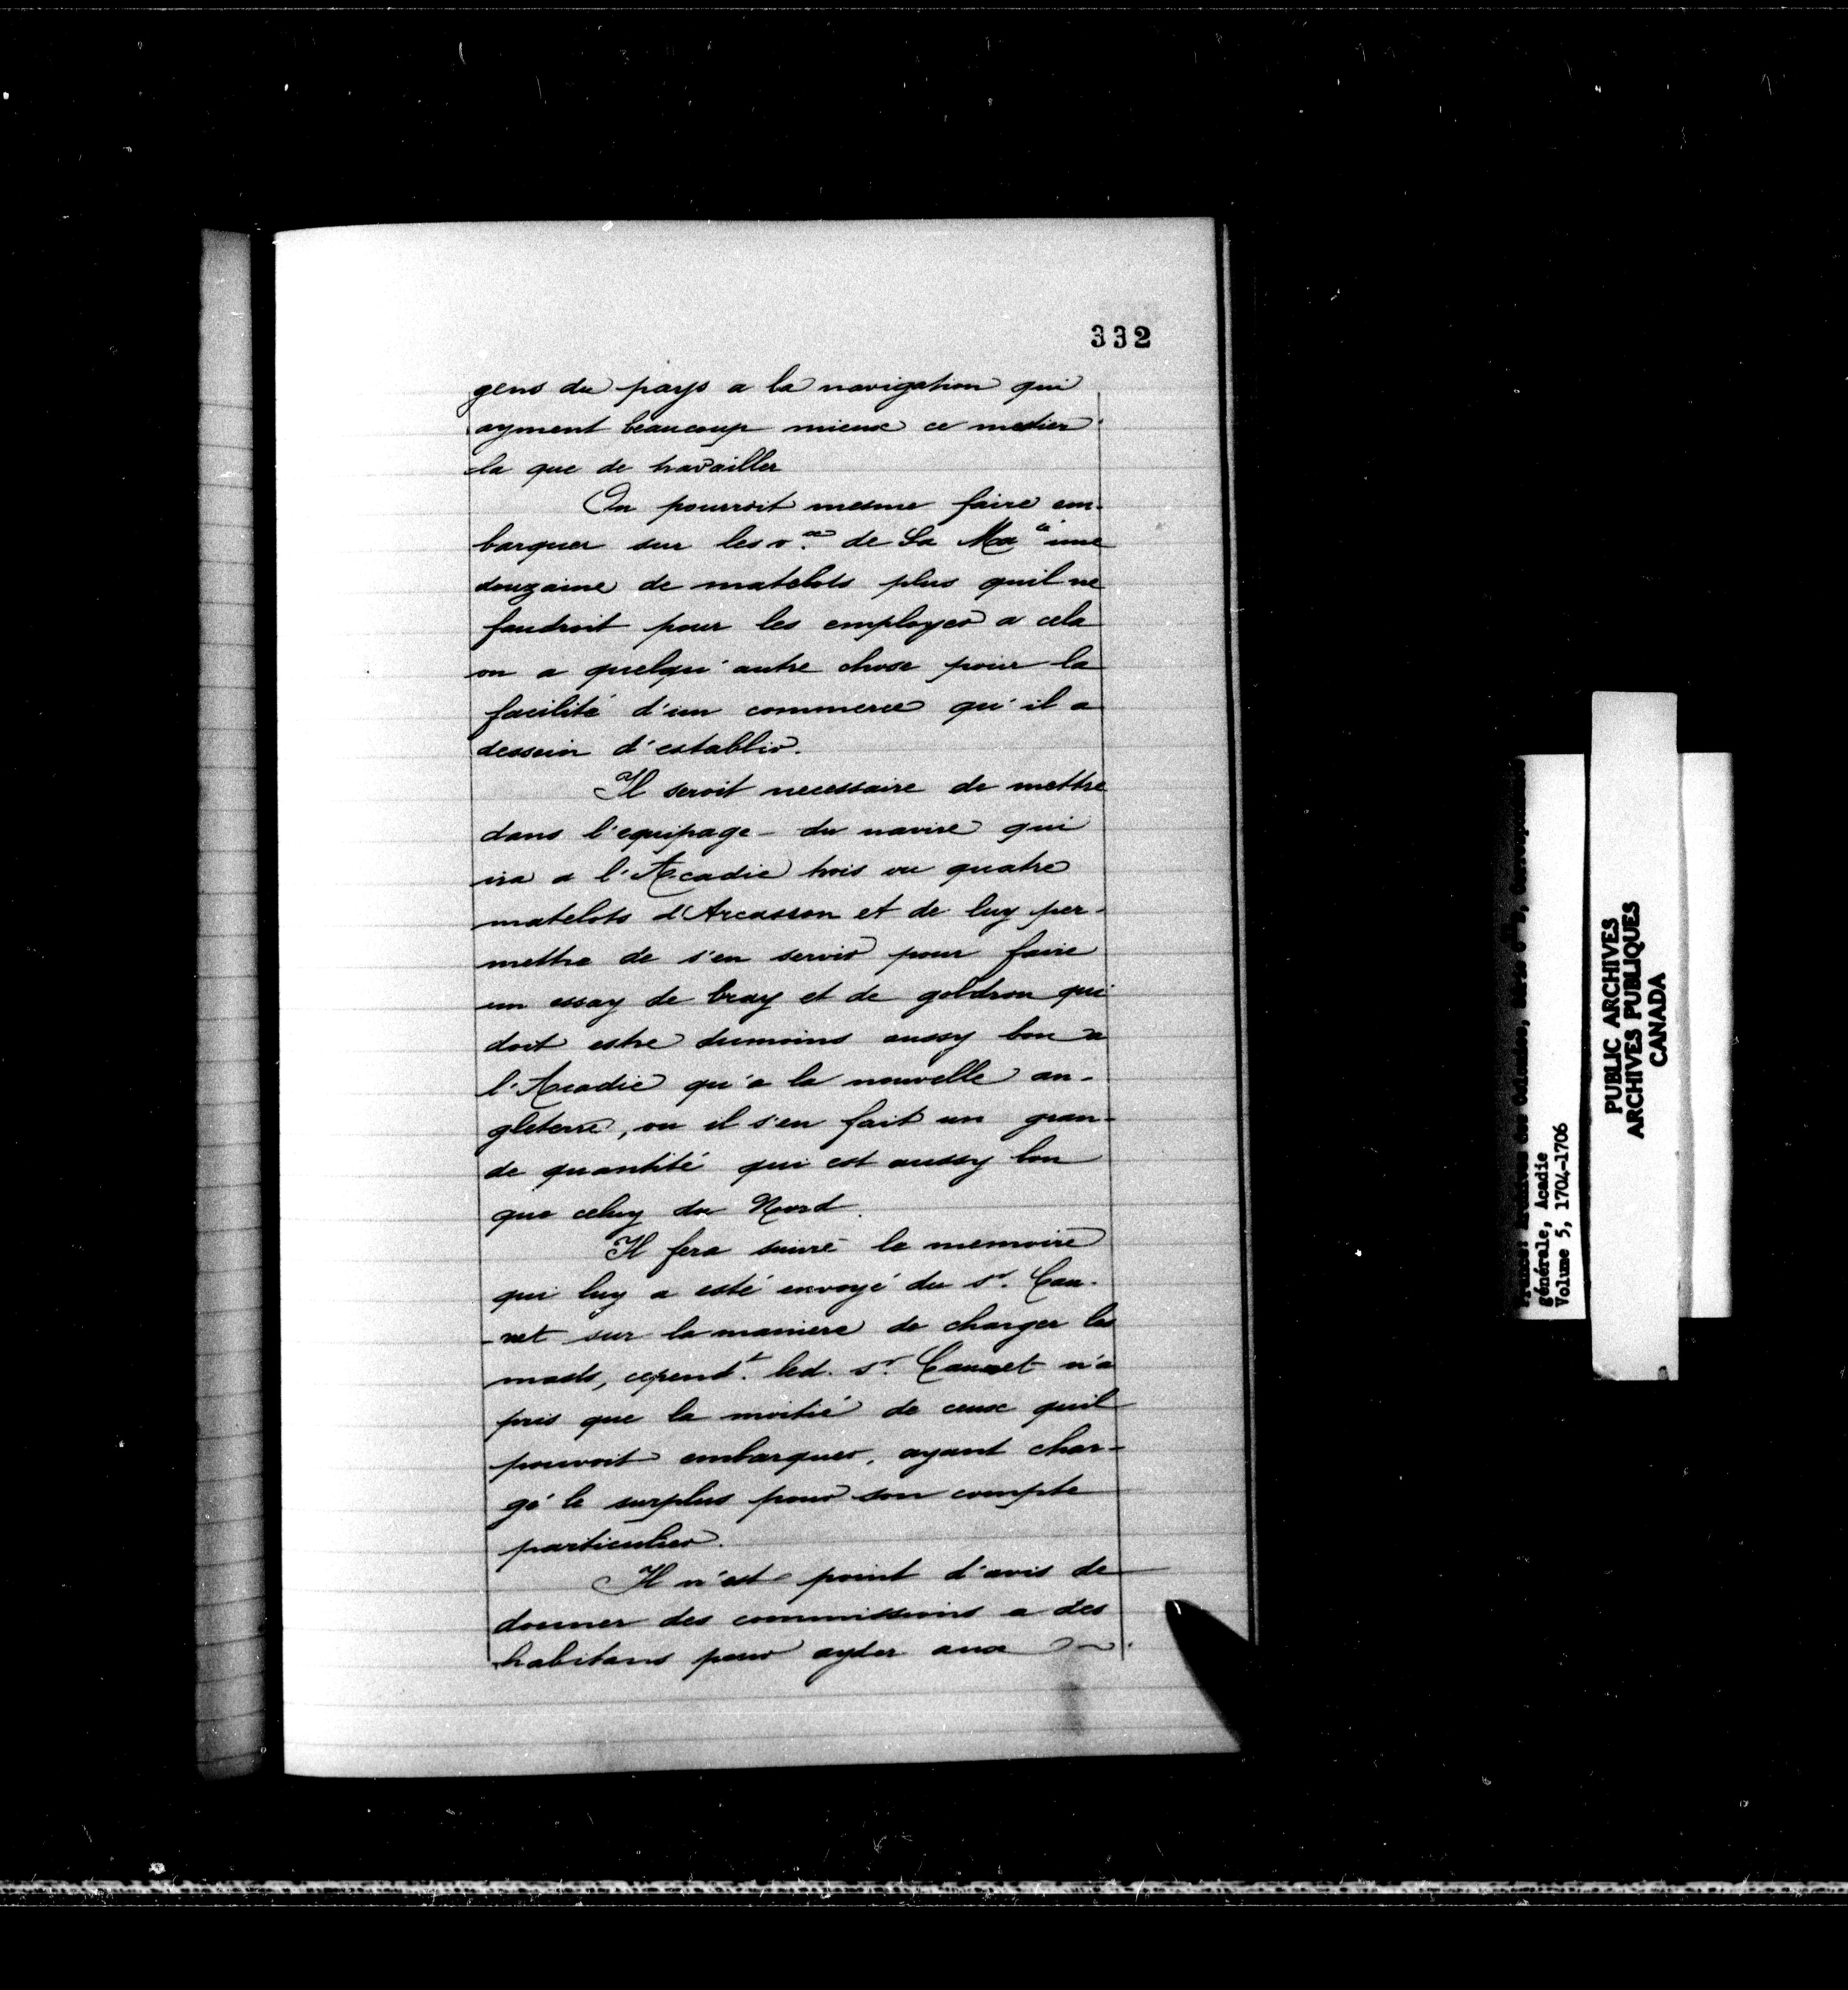 332
gens du pays a la navigation qui
ayment beaucoup mieux ce metier
la que de travailler
On pourroit mesme faire em-
barquer sur les v.aux de Sa Ma té une
douzaine de matelots plus quil ne
faudroit pour les employer a cela
ou a quelqu'autre chose pour la
facilité d'un commerce qu'il a
dessein d'establir.
Il seroit necessaire de mettre
dans l'equipage du navire qui
ira a l'Acadie trois ou quatre
matelots d'Arcasson et de luy per-
mettre de s'en servir pour faire
un essay de bray et de goldron qui
doit estre dumoins aussy bon a
l'Acadie qu'a la nouvelle an-
gleterre, ou il s'en fait un gran-
de quantité qui est aussy bon
que celuy du Nord.
Il fera suivre le memoire
qui luy a esté envoyé du sr. Cau-
-vet sur la maniere de charger les
masts, cepend.t led. sr. Cauvet n'a
pris que la moitié de ceux quil
pouvoit embarquer, ayant char-
gé le surplus pour son compte
particulier.
Il n'est point d'avis de
donner des commissions a des
habitans pour ayder aux
générale, Acadie
Volume 5, 1704-1706
PUBLIC ARCHIVES
ARCHIVES PUBLIQUES
CANADA